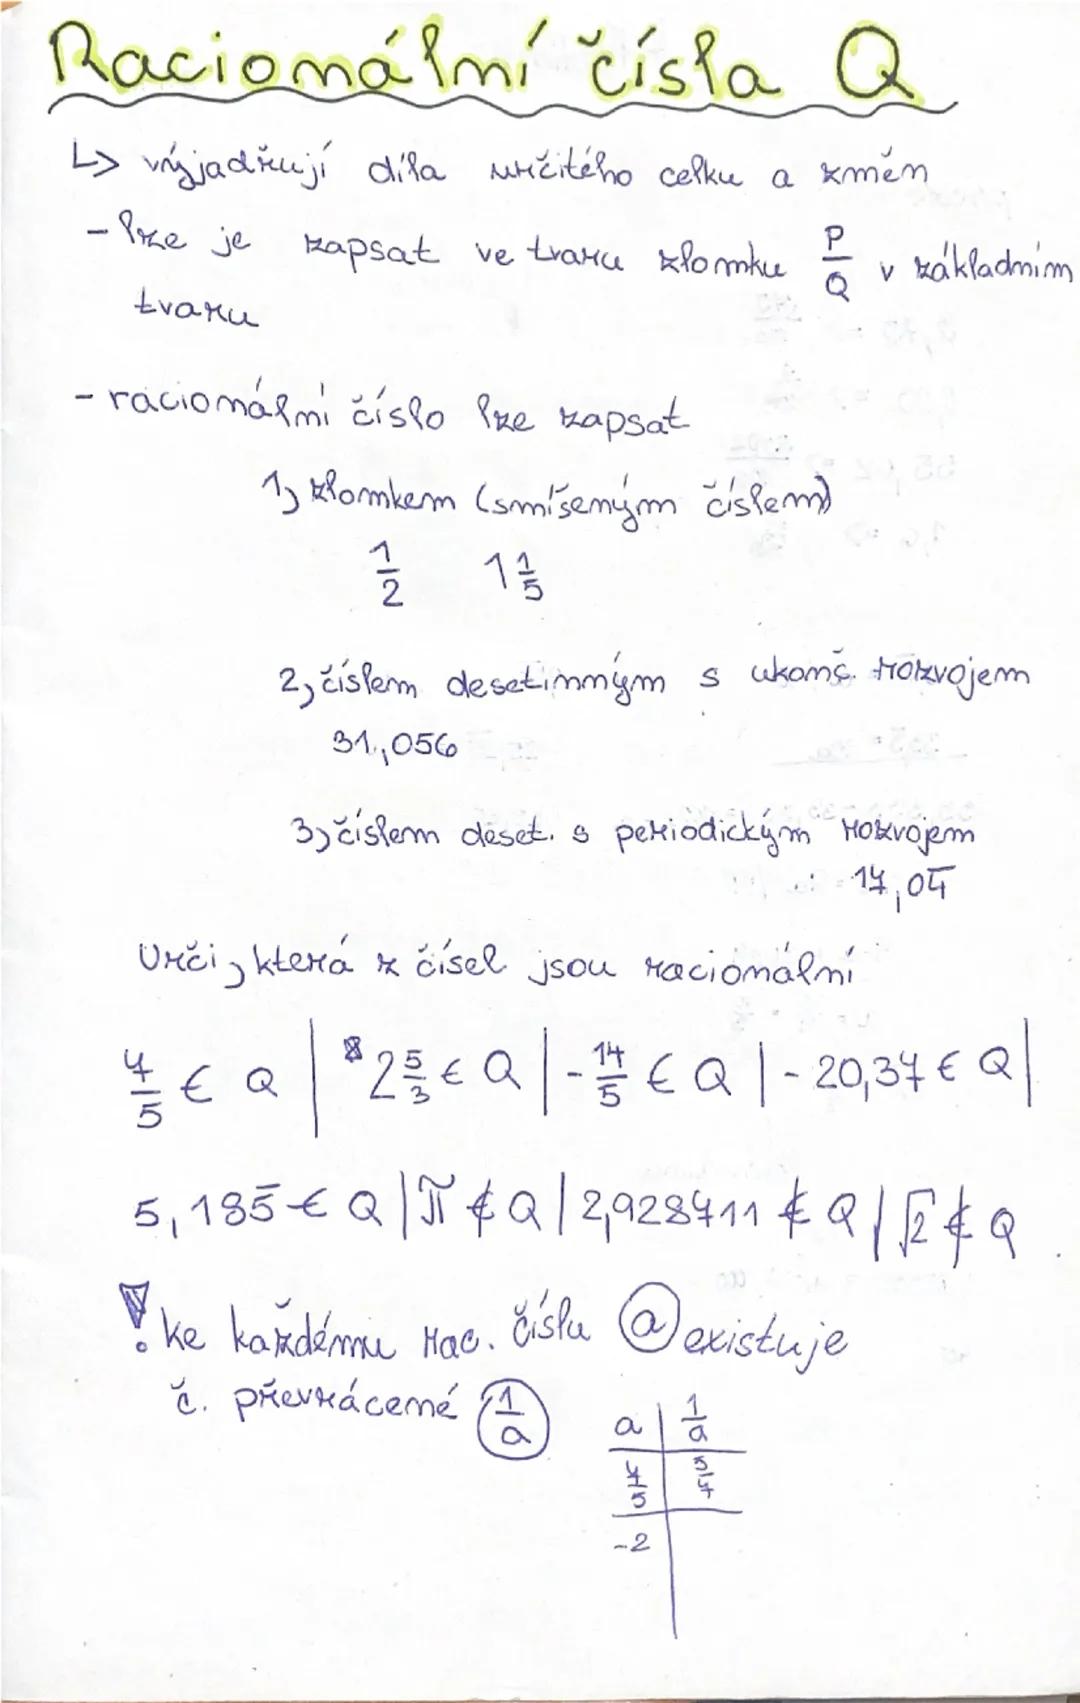 Racionální čísla Q
↳ vyjadřují díla určitého celku a změn
- lze je zapsat ve tvaru zlomku P/Q v základním
tvaru
- racionální číslo lze zapsat
1, zlomkem (smíšeným číslem)
1/2 1 1/5
2, číslem desetinným s ukonč. rozvojem
31,056
3, číslem deset. s periodickým rozvojem
17,0̅4̅
Urči, která z čísel jsou racionální
7/5 € Q | 2 5/3 € Q | - 14/5 € Q | - 20,37 € Q |
5,185̅ € Q | π ∉ Q | 2,928711 ∉ Q | √2 ∉ Q
! ke každému rac. číslu a existuje
č. převrácené 1/a
a | 1/a
7/5 | 5/7
-2